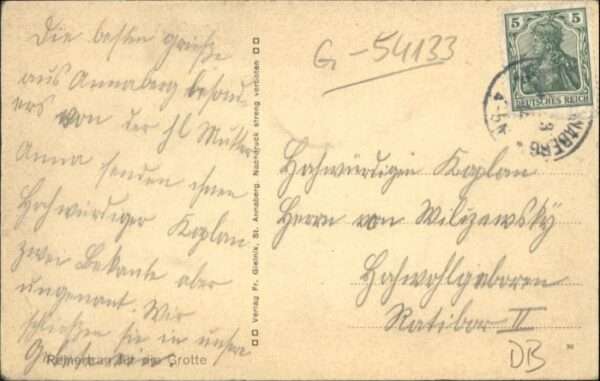 Die besten grüße
aus Annaberg besond-
ers von der hl Mutter
Anna senden ihnen
Hohwürdiger Kaplan
zwei Bekante aber
ungenant. Wir
schließen sie in unsre
Reinertrag für die Grotte
□□ Verlag Fr. Gielnik, St. Annaberg. Nachdruck streng verboten □□
G-54133
5 5
DEUTSCHES REICH
ANNABERG
4-5N
Hohwürdigen Kaplan
Herrn von Wilizewsky
Hohwohlgaboren
Ratibor II
DB